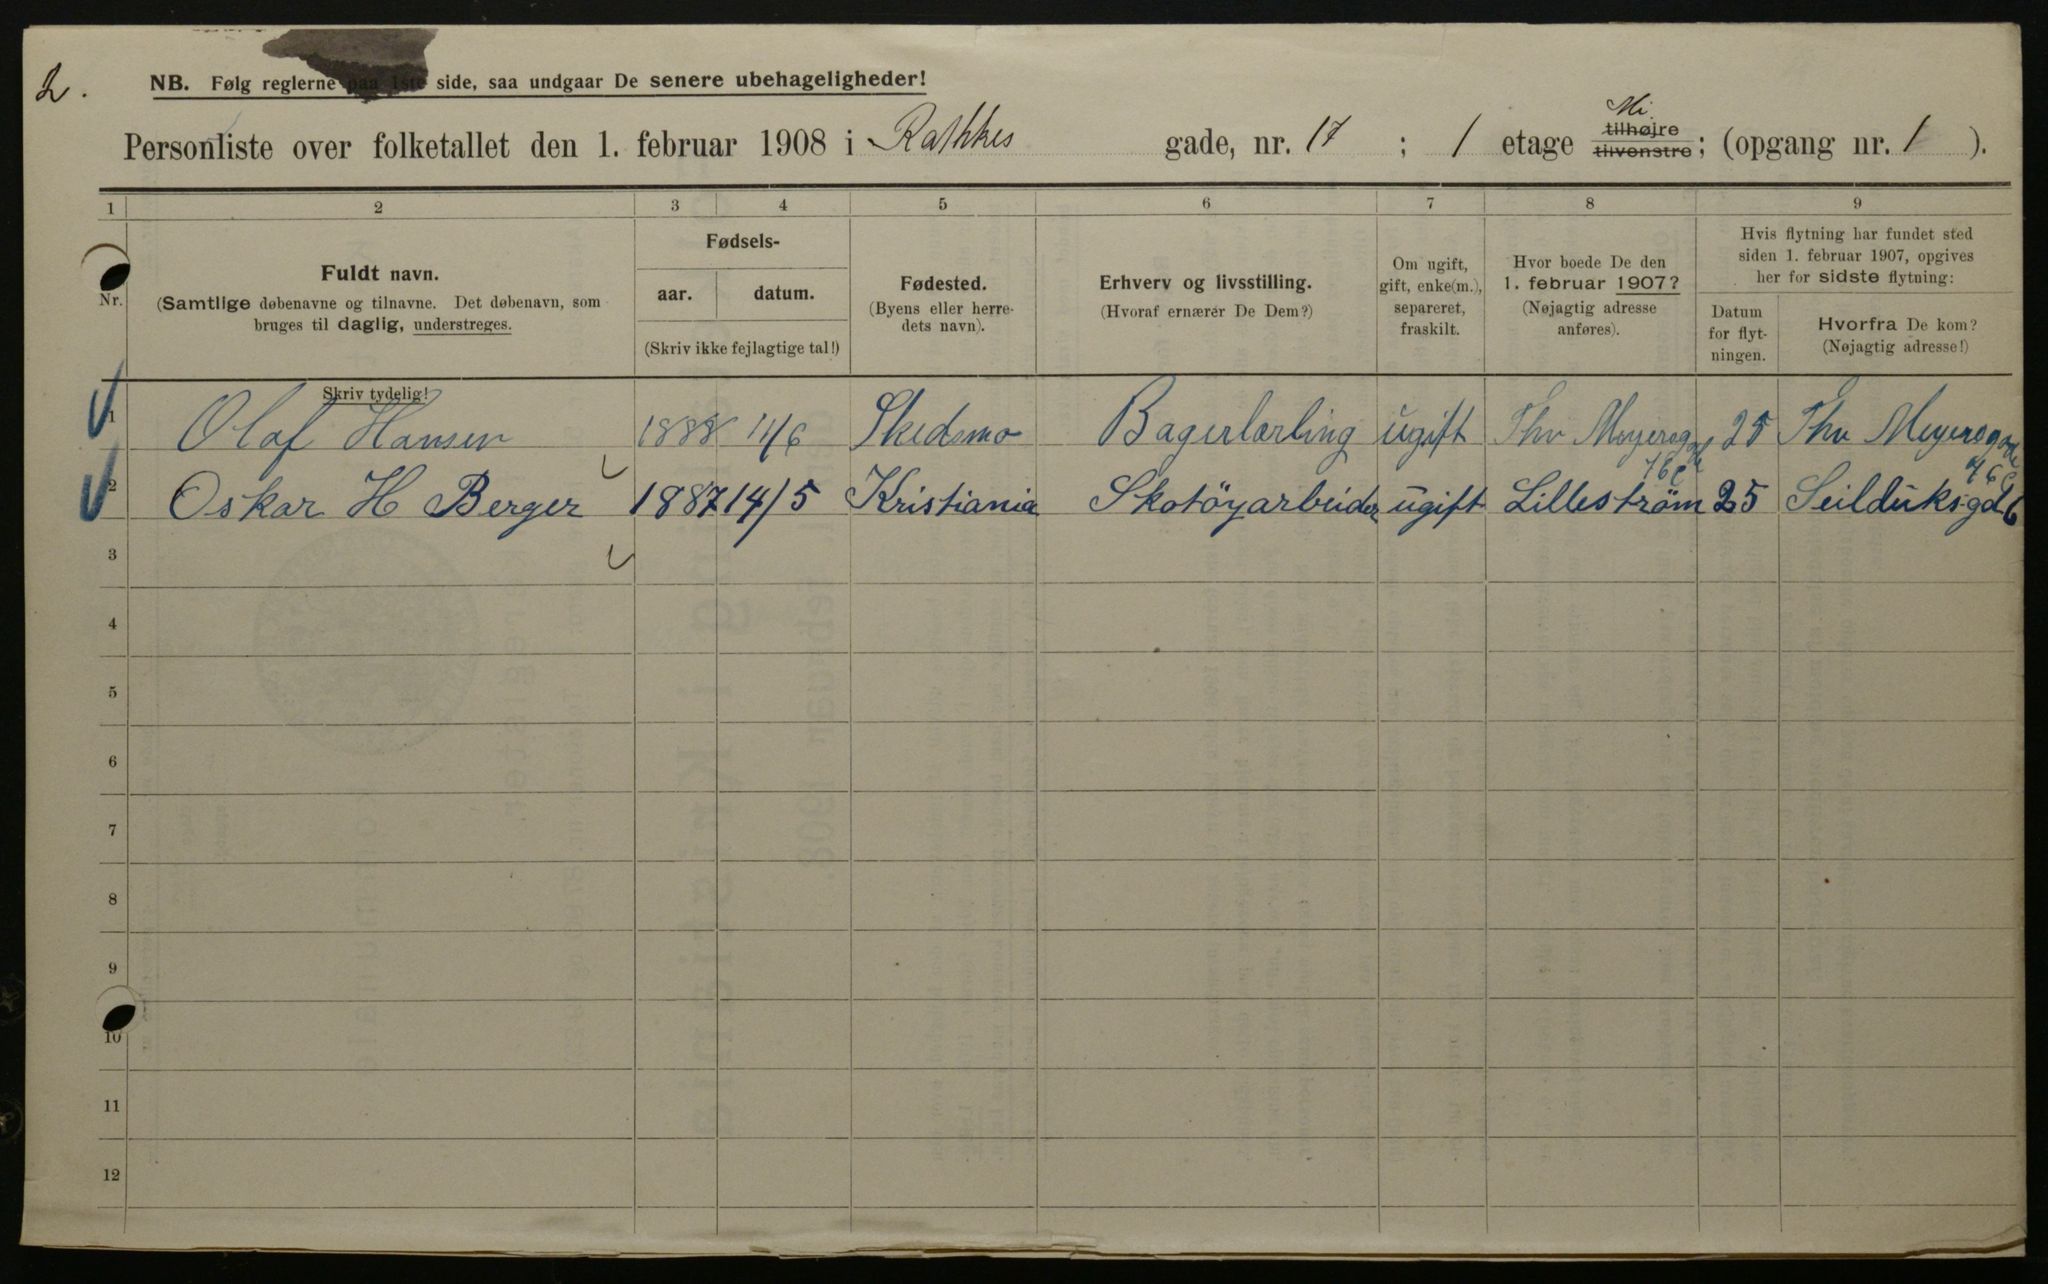 2.
NB. Følg reglerne paa 1ste side, saa undgaar De senere ubehageligheder!
Mi.
Personliste over folketallet den 1. februar 1908 i Rathkes gade, nr. 17 ; 1 etage tilhøjre tilvenstre ; (opgang nr. 1 ).
1 2 3 4 5 6 7 8 9
Nr.
Fuldt navn.
(Samtlige døbenavne og tilnavne. Det døbenavn, som
bruges til daglig, understreges.
Fødsels-
aar. datum.
(Skriv ikke fejlagtige tal!)
Fødested.
(Byens eller herre-
dets navn).
Erhverv og livsstilling.
(Hvoraf ernærer De Dem?)
Om ugift,
gift, enke(m.),
separeret,
fraskilt.
Hvor boede De den
1. februar 1907?
(Nøjagtig adresse
anføres).
Hvis flytning har fundet sted
siden 1. februar 1907, opgives
her for sidste flytning:
Datum
for flyt-
ningen.
Hvorfra De kom?
(Nøjagtig adresse!)
Skriv tydelig!
1 Olaf Hansen 1888 11/6 Skedsmo Bagerlærling ugift Thv Meyersgade 25 Thv Meyersgade
2 Oskar H Berger 1887 14/5 Kristiania Skotöyarbeider ugift Lilleström 25 Seilduksgd
3
4
5
6
7
8
9
10
11
12